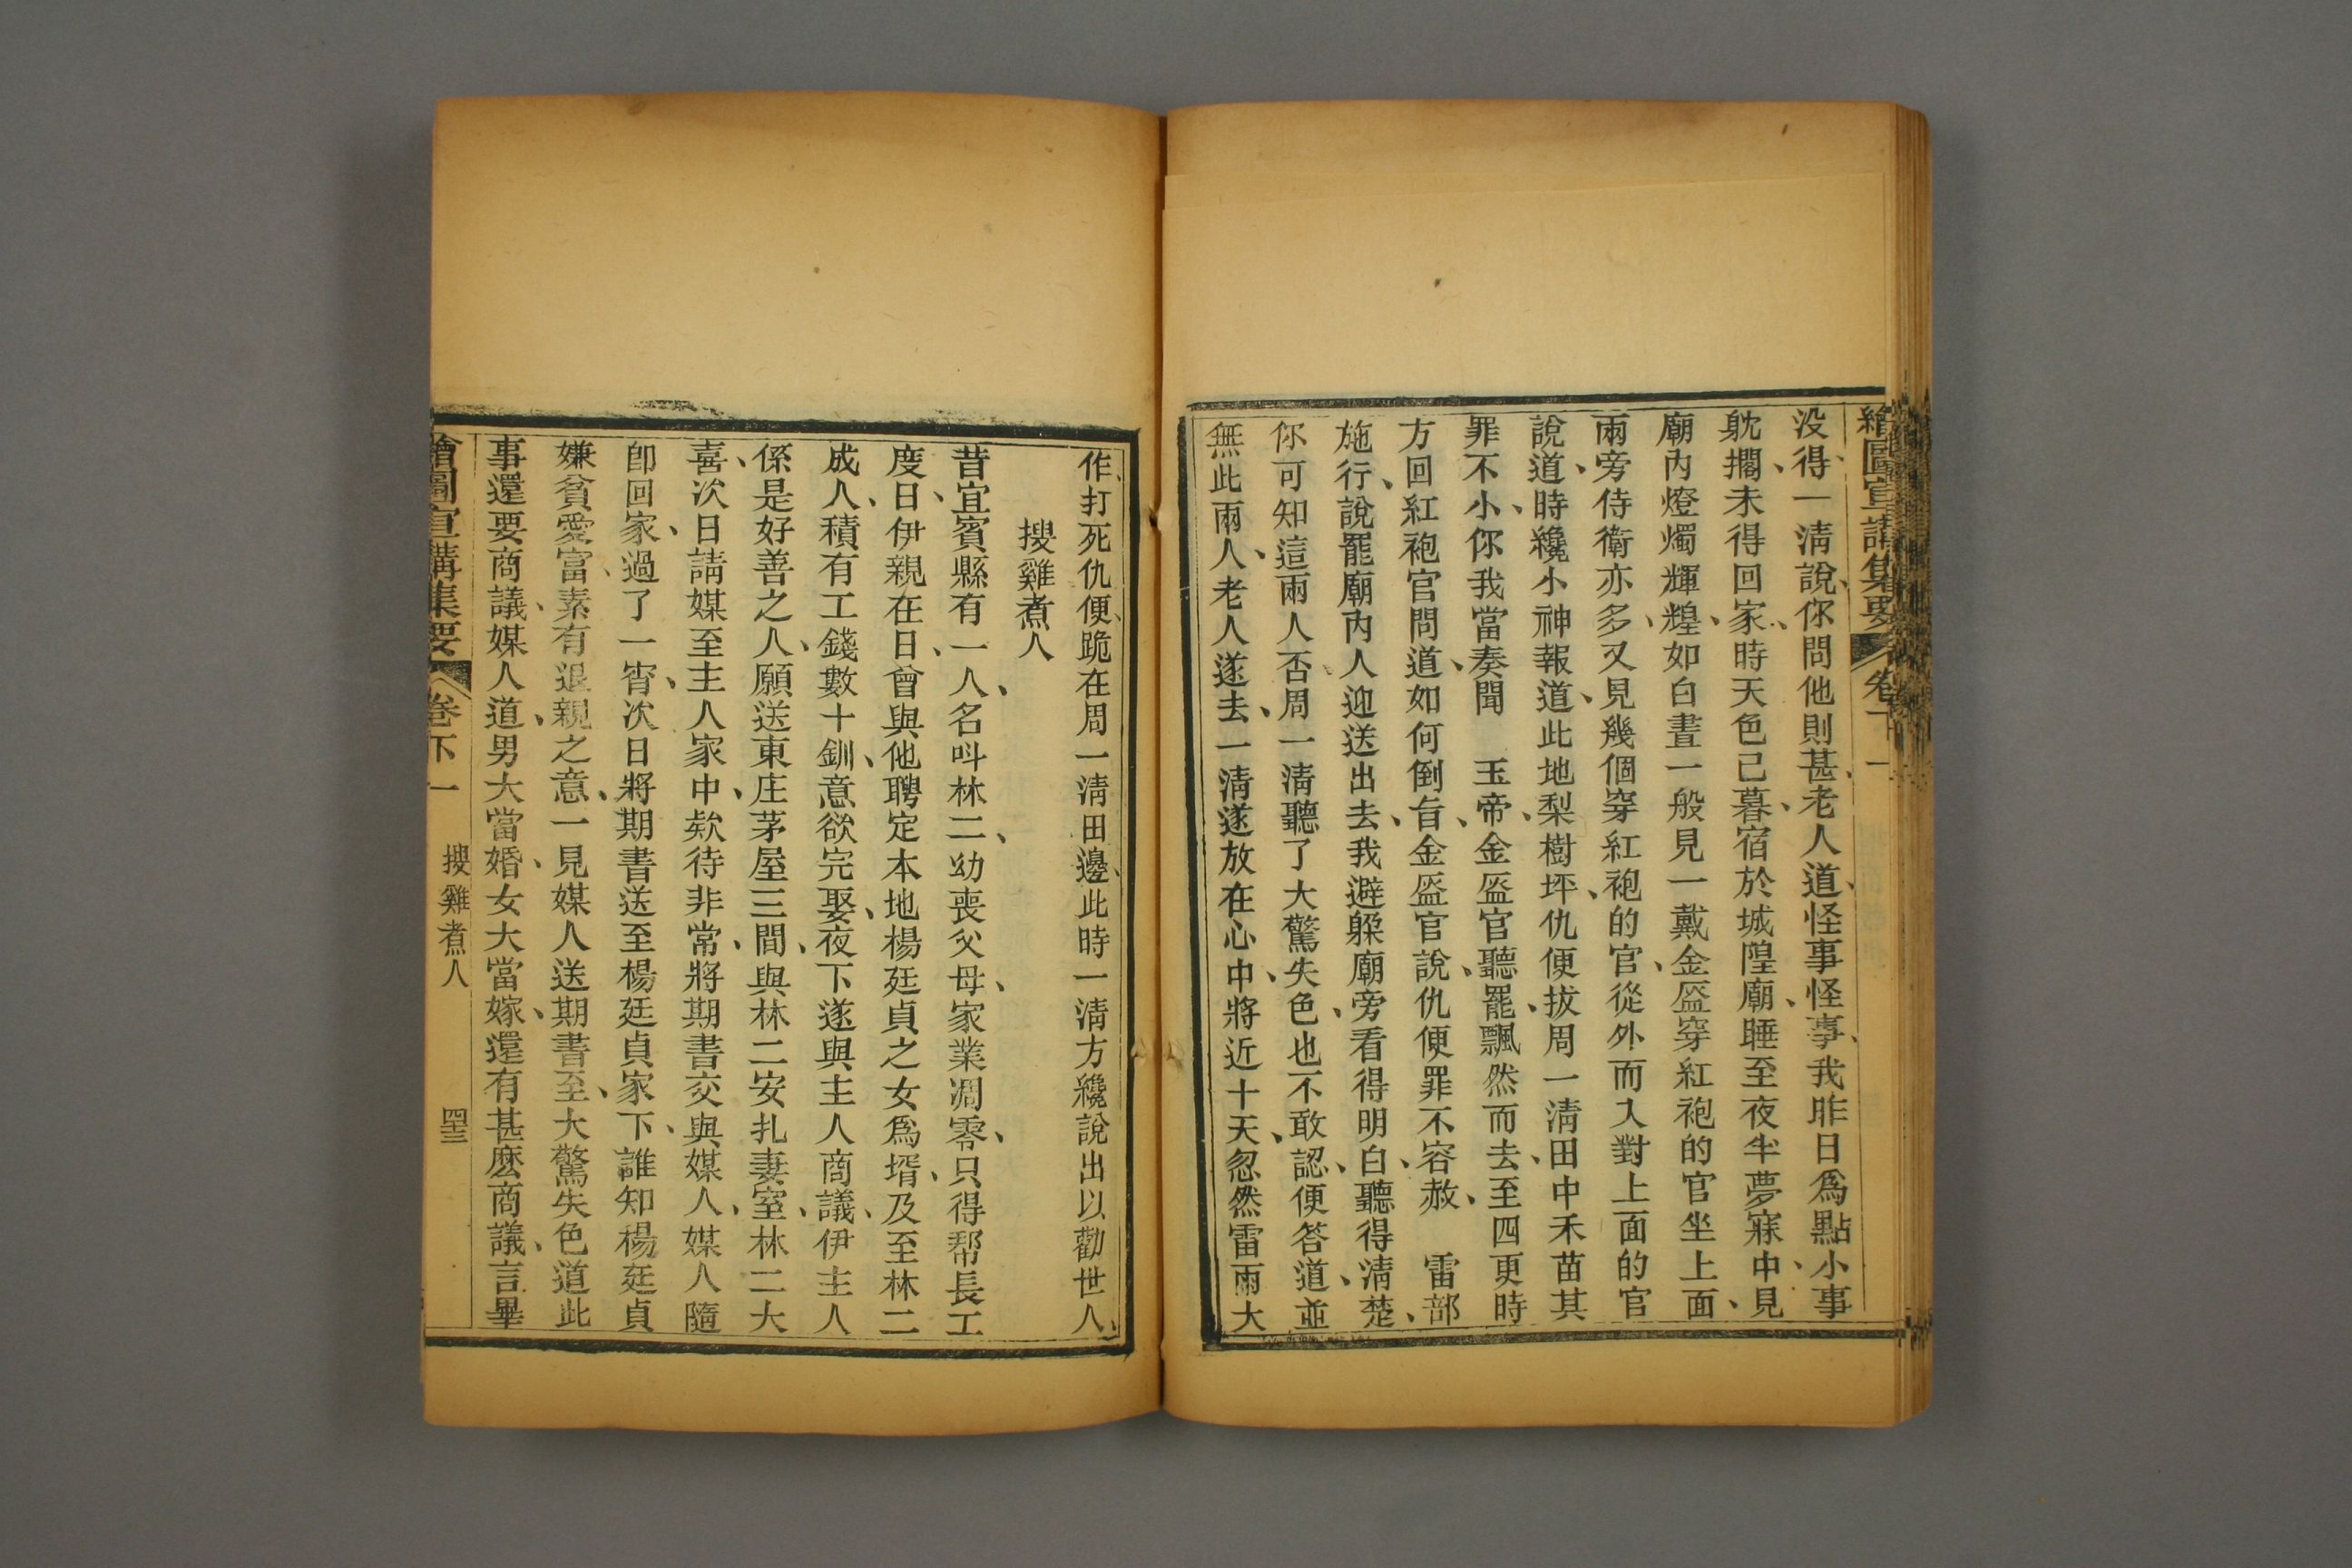 繪圖宣講集要 卷下一
没得、一清說、你問他則甚、老人道、怪事怪事、我昨日爲點小事
躭擱、未得回家、時天色已暮、宿於城隍廟、睡至夜半夢寐中、見
廟內燈燭輝煌、如白晝一般見一戴金盔穿紅袍的官坐上面、
兩旁侍衛亦多、又見幾個穿紅袍的官、從外而入對上面的官
說道、時纔小神報道、此地梨樹坪、仇便拔周一清田中禾苗其
罪不小、你我當奏聞 玉帝、金盔官聽罷、飄然而去、至四更時
方回紅袍官問道、如何倒旨、金盔官說、仇便罪不容赦、 雷部
施行、說罷廟內人迎送出去、我避躲廟旁看得明白、聽得清楚、
你可知這兩人否周一清聽了大驚失色、也不敢認、便答道、並
無此兩人、老人遂去、一清遂放在心中、將近十天、忽然雷雨大
作、打死仇便、跪在周一清田邊、此時一清方纔說出以勸世人、
搜雞煮人
昔宜賓縣有一人、名呌林二、幼喪父母、家業凋零、只得帮長工
度日、伊親在日、曾與他聘定本地楊廷貞之女爲壻、及至林二
成人、積有工錢數十釧、意欲完娶、夜下遂與主人商議、伊主人
係是好善之人、願送東庄茅屋三間、與林二安扎妻室、林二大
喜、次日請媒至主人家中、欵待非常、將期書交與媒人、媒人隨
卽回家、過了一宵、次日將期書送至楊廷貞家下、誰知楊廷貞
嫌貧愛富、素有退親之意、一見媒人送期書至、大驚失色道此
事還要商議、媒人道、男大當婚、女大當嫁、還有甚麽商議、言畢
繪圖宣講集要 卷下一 搜雞煮人 四十三